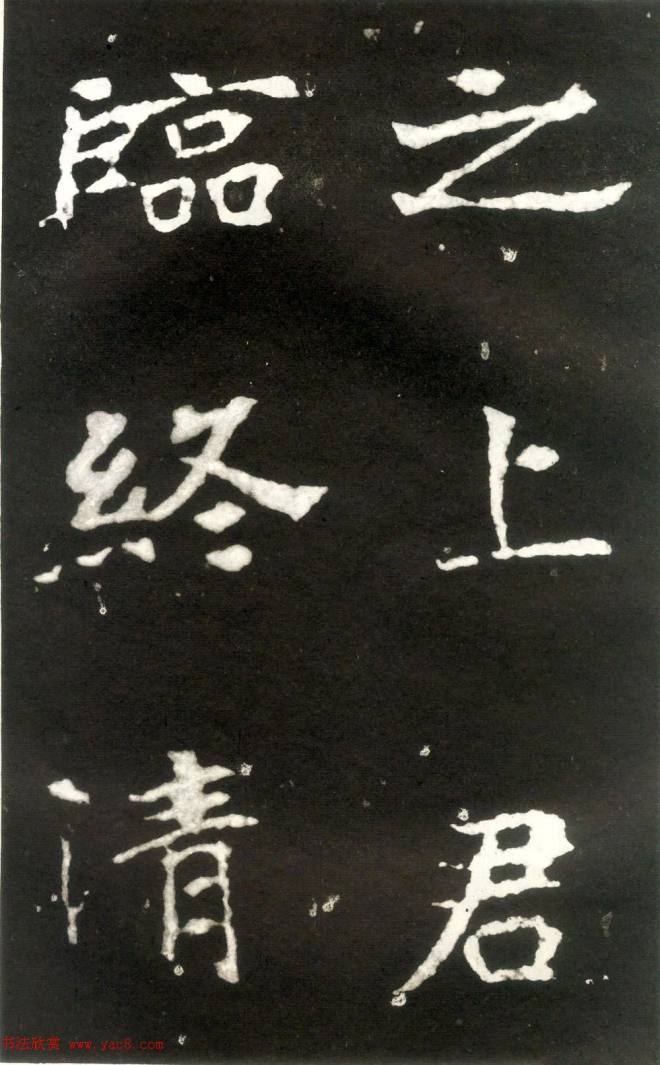 之上君
臨終清
书法欣赏 www.yac8.com